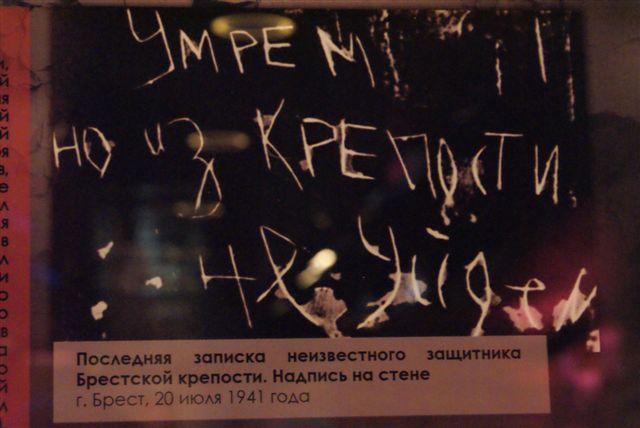 УМРЕМ
НО ИЗ КРЕПОСТИ
НЕ УЙДЕМ
Последняя записка неизвестного защитника
Брестской крепости. Надпись на стене
г. Брест, 20 июля 1941 года